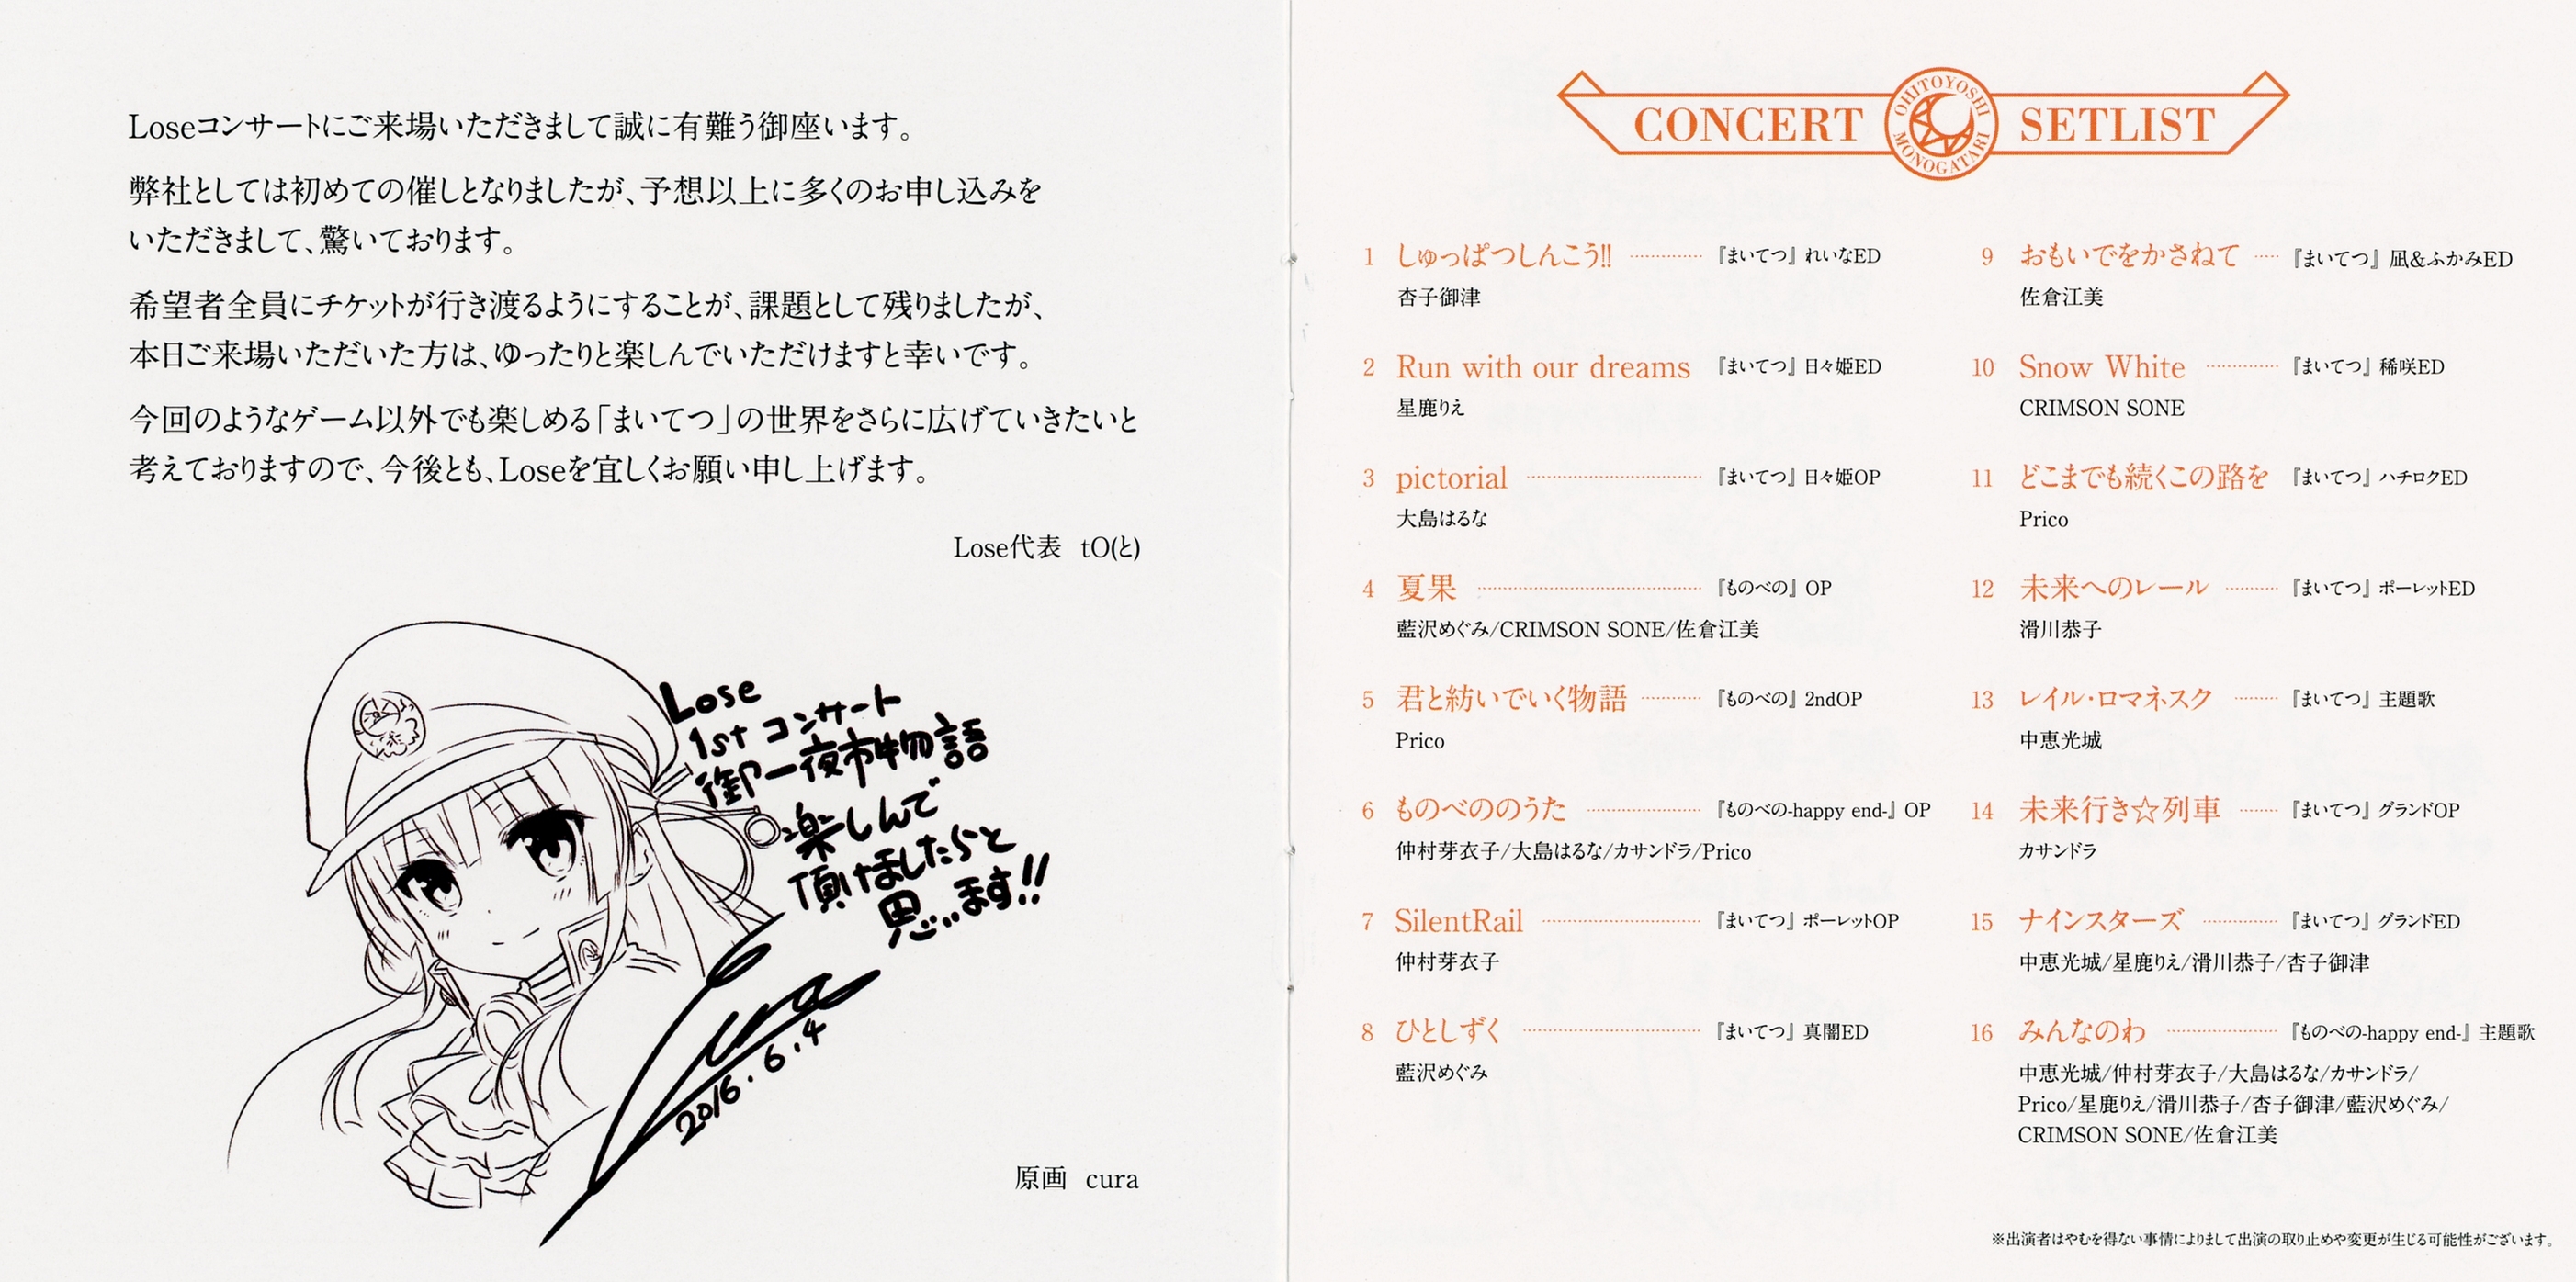 Loseコンサートにご来場いただきまして誠に有難う御座います。
弊社としては初めての催しとなりましたが、予想以上に多くのお申し込みを
いただきまして、驚いております。
希望者全員にチケットが行き渡るようにすることが、課題として残りましたが、
本日ご来場いただいた方は、ゆったりと楽しんでいただけますと幸いです。
今回のようなゲーム以外でも楽しめる「まいてつ」の世界をさらに広げていきたいと
考えておりますので、今後とも、Loseを宜しくお願い申し上げます。
Lose代表 tO(と)
Lose
1st コンサート
御一夜市物語
楽しんで
頂けましたらと
思います!!
cura
2016.6.4
原画 cura
CONCERT SETLIST
OHITOYOSHI
MONOGATARI
1 しゅっぱつしんこう!! 『まいてつ』れいなED
杏子御津
2 Run with our dreams 『まいてつ』日々姫ED
星鹿りえ
3 pictorial 『まいてつ』日々姫OP
大島はるな
4 夏果 『ものべの』OP
藍沢めぐみ/CRIMSON SONE/佐倉江美
5 君と紡いでいく物語 『ものべの』2ndOP
Prico
6 ものべののうた 『ものべの-happy end-』OP
仲村芽衣子/大島はるな/カサンドラ/Prico
7 SilentRail 『まいてつ』ポーレットOP
仲村芽衣子
8 ひとしずく 『まいてつ』真闇ED
藍沢めぐみ
9 おもいでをかさねて 『まいてつ』凪&ふかみED
佐倉江美
10 Snow White 『まいてつ』稀咲ED
CRIMSON SONE
11 どこまでも続くこの路を 『まいてつ』ハチロクED
Prico
12 未来へのレール 『まいてつ』ポーレットED
滑川恭子
13 レイル・ロマネスク 『まいてつ』主題歌
中恵光城
14 未来行き☆列車 『まいてつ』グランドOP
カサンドラ
15 ナインスターズ 『まいてつ』グランドED
中恵光城/星鹿りえ/滑川恭子/杏子御津
16 みんなのわ 『ものべの-happy end-』主題歌
中恵光城/仲村芽衣子/大島はるな/カサンドラ/
Prico/星鹿りえ/滑川恭子/杏子御津/藍沢めぐみ/
CRIMSON SONE/佐倉江美
※出演者はやむを得ない事情によりまして出演の取り止めや変更が生じる可能性がございます。